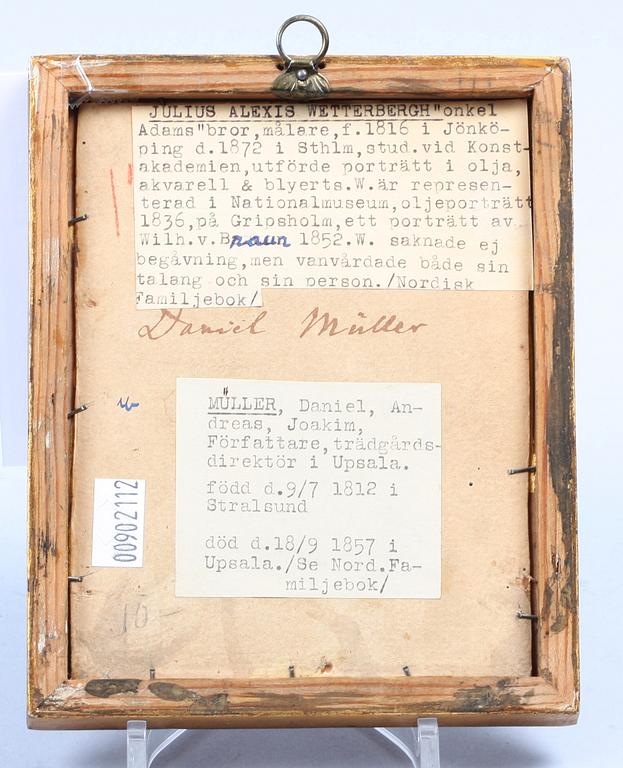 JULIUS ALEXIS WETTERBERGH"onkel
Adams"bror,målare,f.1816 i Jönkö-
ping d.1872 i Sthlm,stud.vid Konst-
akademien,utförde porträtt i olja,
akvarell & blyerts.W.är represen-
terad i Nationalmuseum,oljeporträtt
1836,på Gripsholm,ett porträtt av
Wilh.v.Braun 1852.W. saknade ej
begåvning,men vanvårdade både sin
talang och sin person./Nordisk
Familjebok/
Daniel Müller
MÜLLER, Daniel, An-
dreas, Joakim,
Författare,trädgårds-
direktör i Upsala.
född d.9/7 1812 i
Stralsund
död d.18/9 1857 i
Upsala./Se Nord.Fa-
miljebok/
00902112
10-